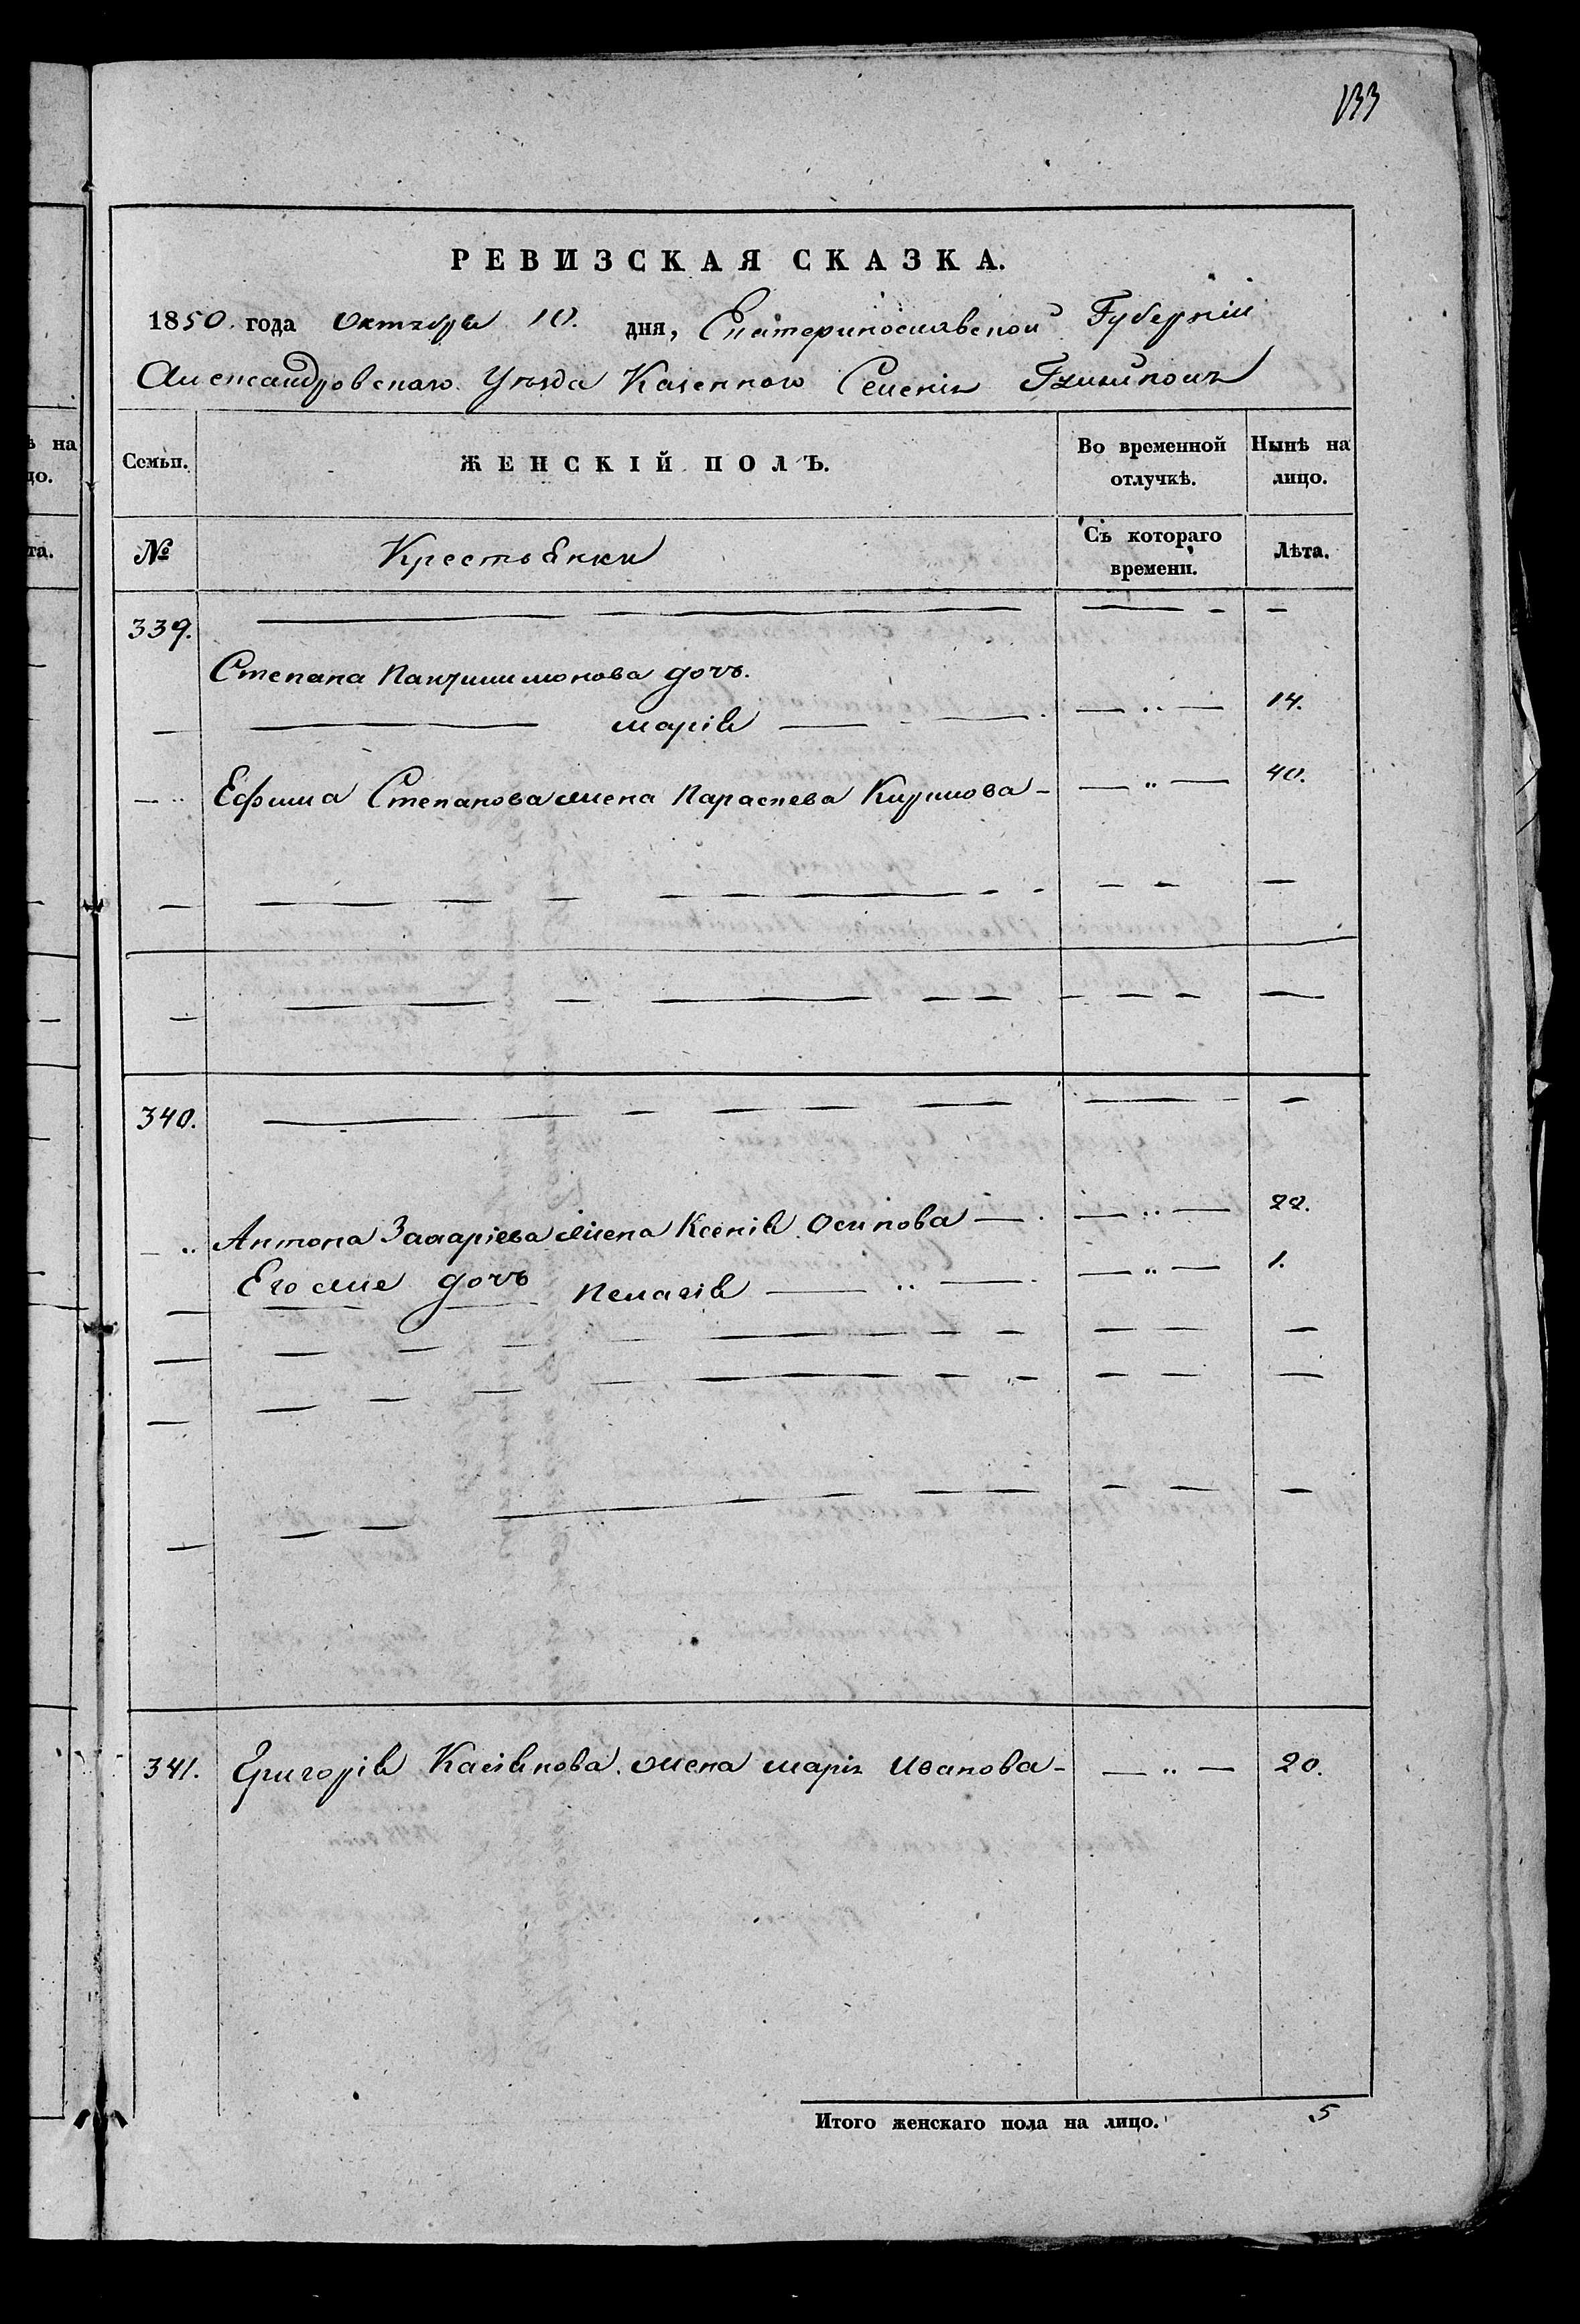 133
РЕВИЗСКАЯ СКАЗКА.
1850. года Октября 10. дня, Екатеринославской Губерніи
Александровскаго Уѣзда Казеннаго Селенія
Семьи. ЖЕНСКІЙ ПОЛЪ. Во временной отлучкѣ. Нынѣ на лицо.
№ Крестьянки Съ котораго времени. Лѣта.
339.
Степана дочь.
марія 14.
Ефима Степанова жена Параскева Кирилова 40.
340.
Антона Захаріева жена Ксенія Осипова 22.
Его же дочь Пелагія 1.
341. Григорія Касянова жена марія Иванова 20.
Итого женскаго пола на лицо. 5
ѣ на
цо.
та.